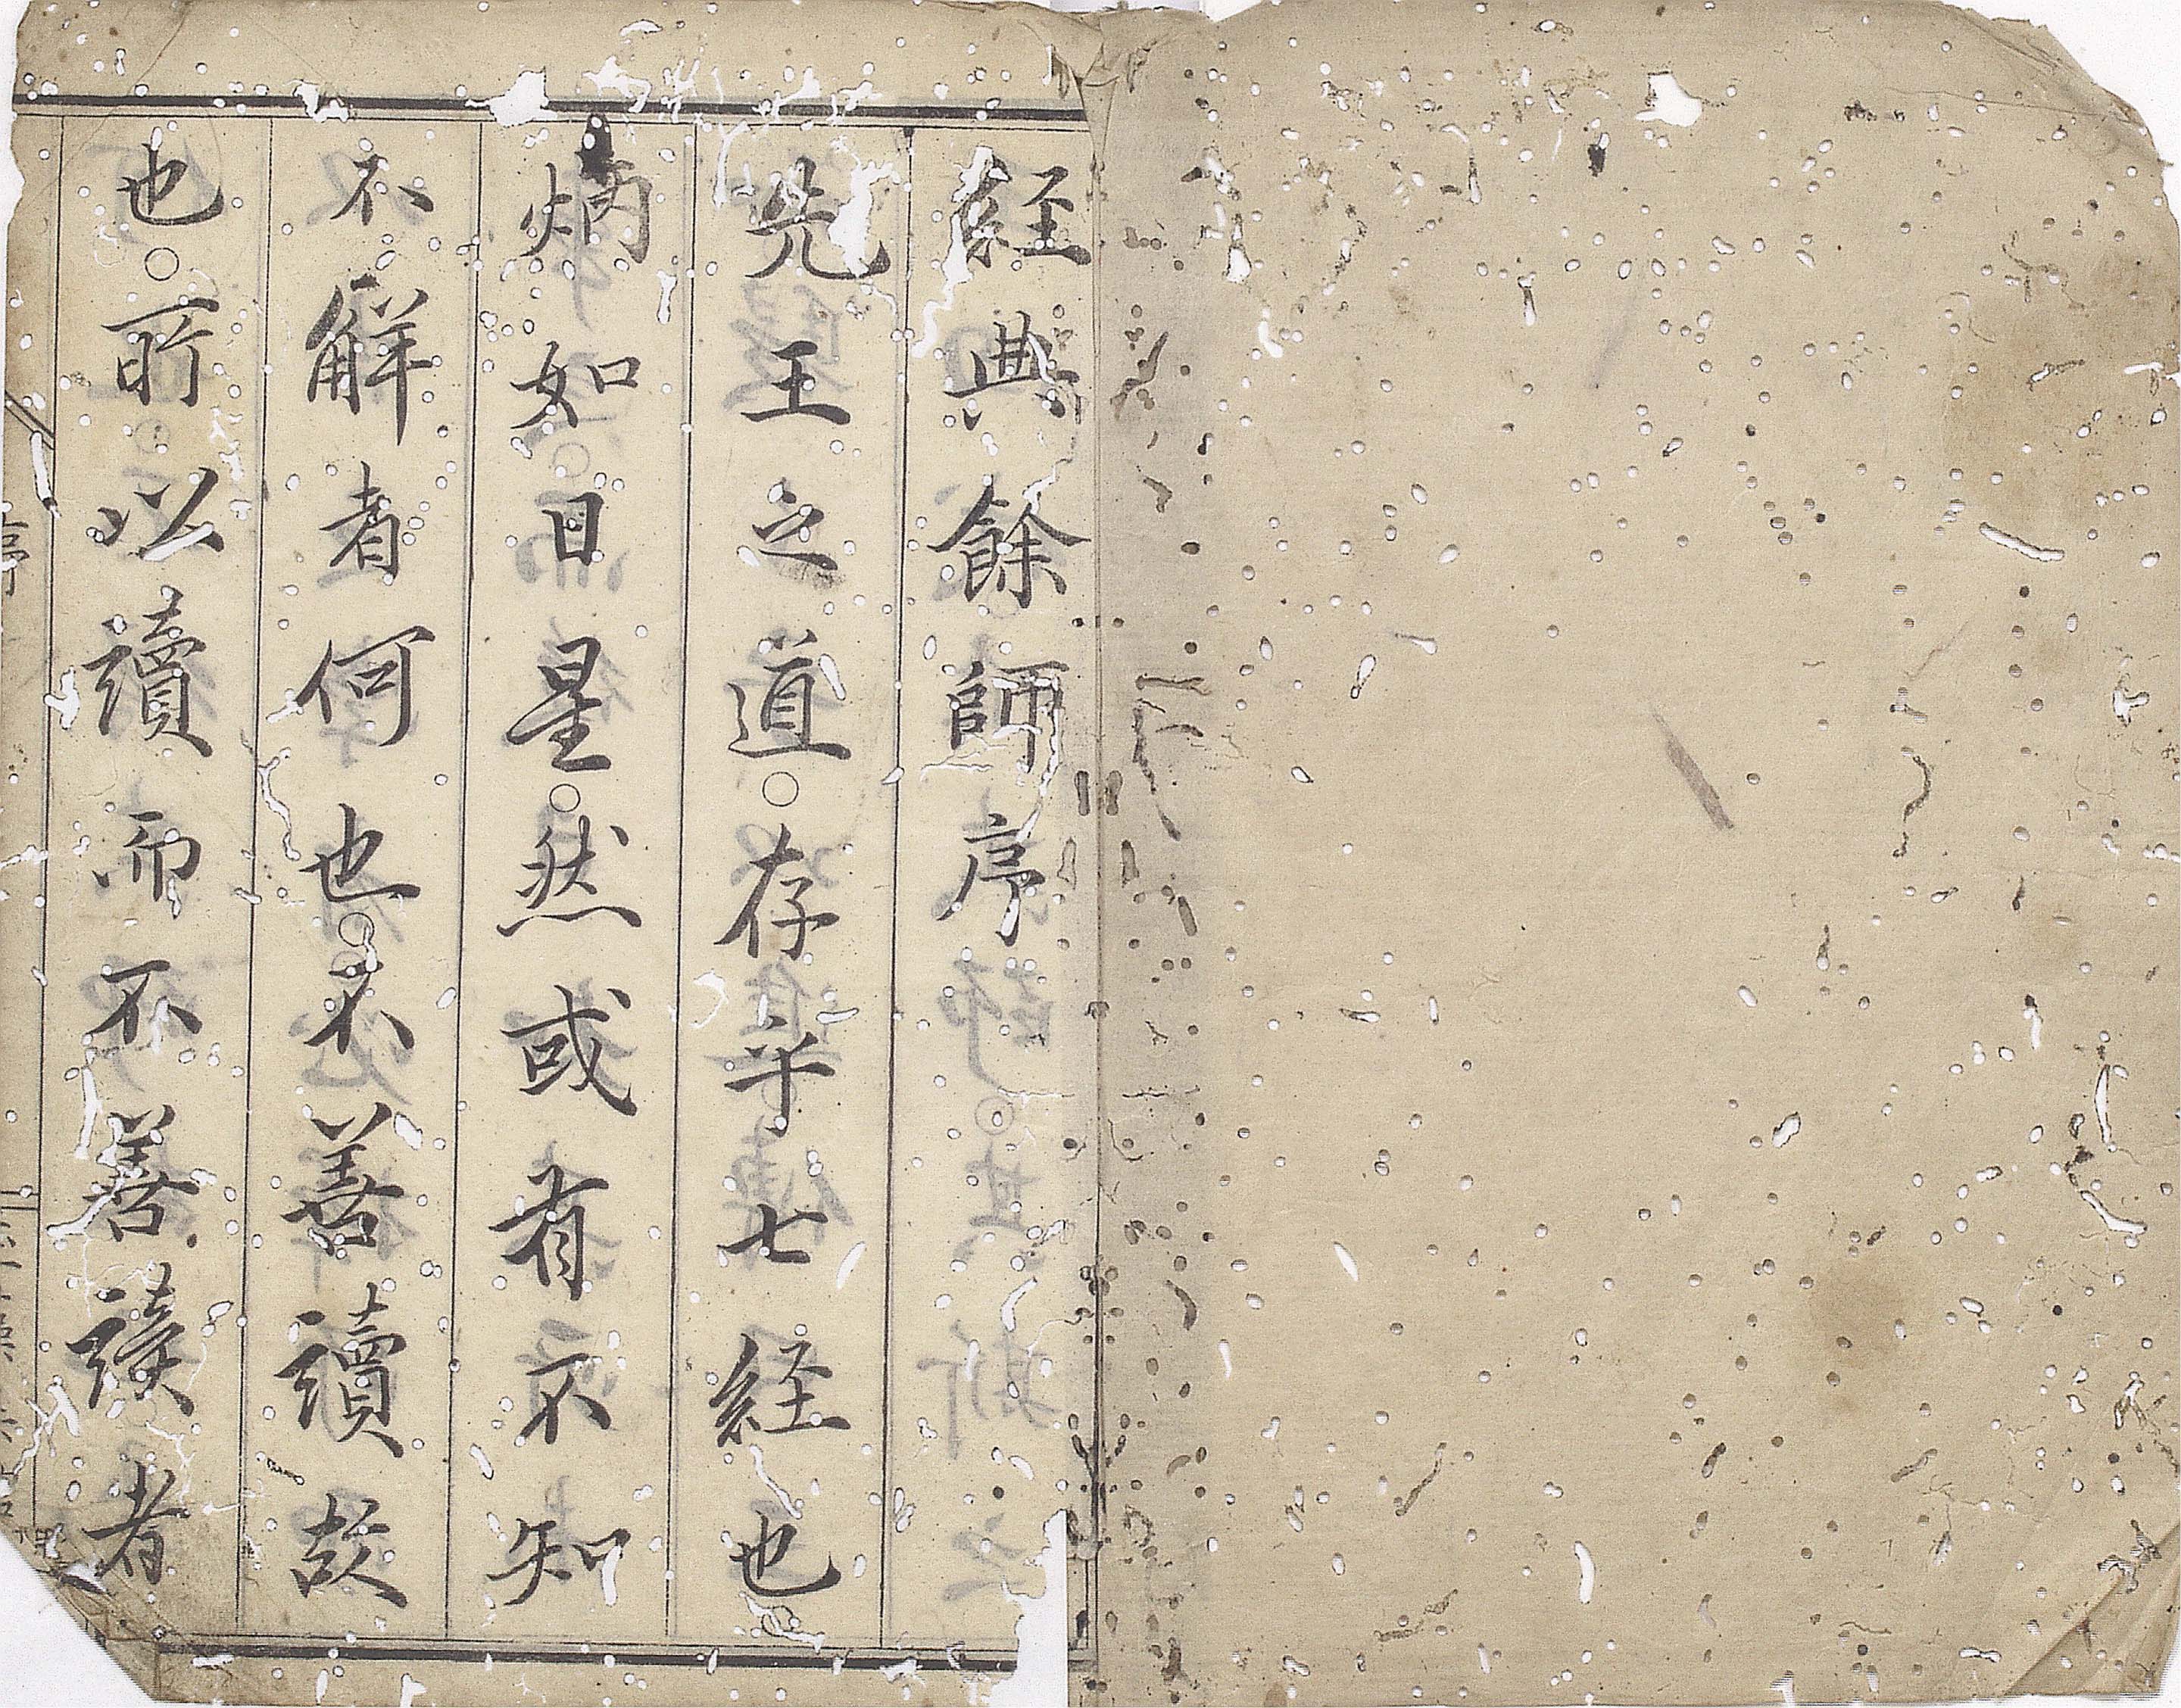 経典餘師序
先王之道○存乎七経也○
炳如日星○然或有不知
不解者何也○不善讀故
也○所以讀而不善讀者
序